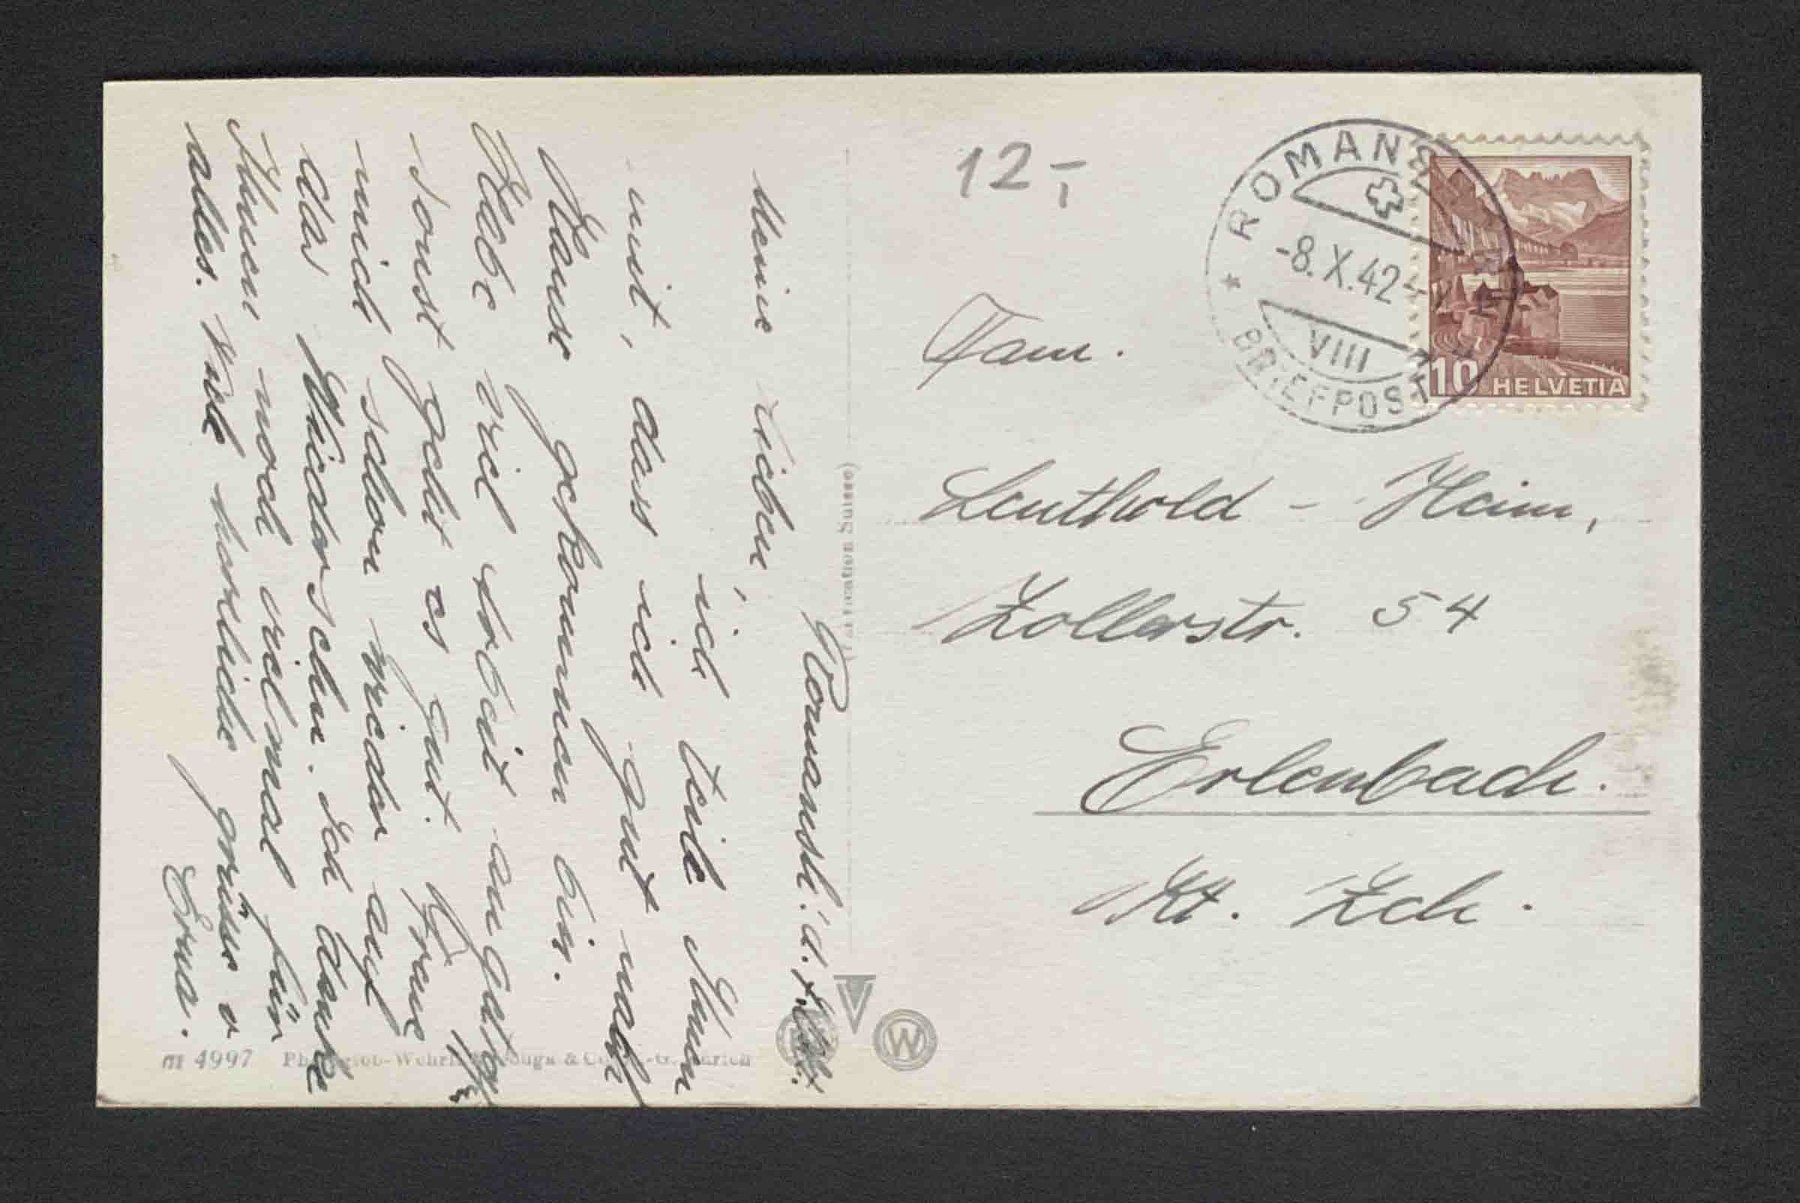 Romansh. d.
Meine Lieben,
ich teile Ihnen
mit, dass ich gut nach
Hause gekommen bin.
Habe viel Arbeit angetroffen
sonst geht es gut. Freue
mich schon wieder auf
das Wiedersehn. Ich danke
Ihnen noch vielmal für
alles. Viele herzliche Grüsse v.
Erna.
12,-
ROMANSHORN
-8.X.42-
VIII
BRIEFPOST
10 HELVETIA
Fam.
Leuthold - Heim,
Zollerstr. 54
Erlenbach.
Kt. Zch.
(Fabrication Suisse)
W
4997
& Co
Zürich